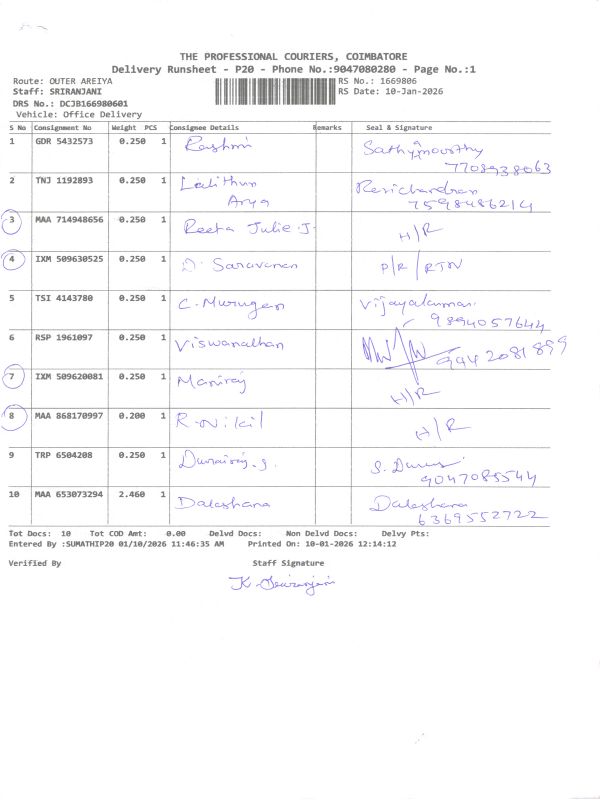 THE PROFESSIONAL COURIERS, COIMBATORE
Delivery Runsheet - P20 - Phone No.:9047080280 - Page No.:1
Route: OUTER AREIYA RS No.: 1669806
Staff: SRIRANJANI RS Date: 10-Jan-2026
DRS No.: DCJB166980601
Vehicle: Office Delivery
S No Consignment No Weight PCS Consignee Details Remarks Seal & Signature
1 GDR 5432573 0.250 1 Rashmi Sathymoorthy
7708938063
2 TNJ 1192893 0.250 1 Lalithun Ravichandran
Arya 7598486214
3 MAA 714948656 0.250 1 Reeta Julie.J. H/R
4 IXM 509630525 0.250 1 D. Saravanan P/R/RTN
5 TSI 4143780 0.250 1 C. Murugan Vijayakumar
9894057644
6 RSP 1961097 0.250 1 Viswanathan 9442081899
7 IXM 509620081 0.250 1 Maniraj H/R
8 MAA 868170997 0.200 1 R. Nikil H/R
9 TRP 6504208 0.250 1 Durairaj. S.
9047085544
10 MAA 653073294 2.460 1 Daleshana Daleshana
6369552722
Tot Docs: 10 Tot COD Amt: 0.00 Delvd Docs: Non Delvd Docs: Delvy Pts:
Entered By :SUMATHIP20 01/10/2026 11:46:35 AM Printed On: 10-01-2026 12:14:12
Verified By Staff Signature